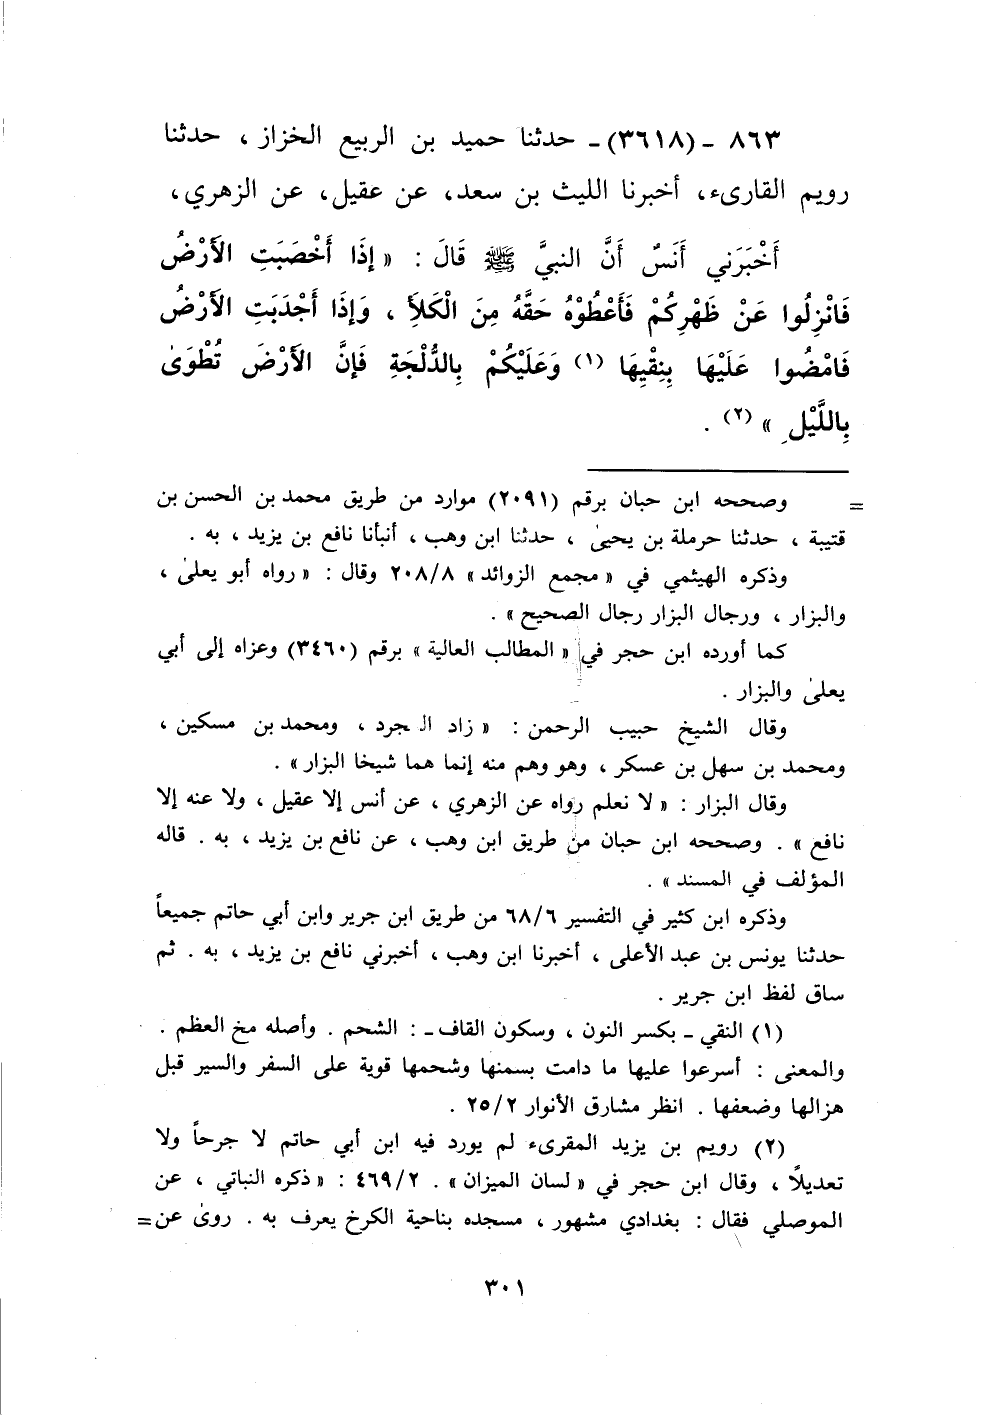 ٨٦٣ - (٣٦١٨) - حدثنا حميد بن الربيع الخزاز ، حدثنا
رويم القارىء، أخبرنا الليث بن سعد، عن عقيل، عن الزهري،
أَخْبَرَني أَنَسٌ أَنَّ النبيَّ ﷺ قَالَ : « إذَا أَخْصَبَتِ الأَرْضُ
فَانْزِلُوا عَنْ ظَهْرِكُمْ فَأَعْطُوْهُ حَقَّهُ مِنَ الْكَلأِ ، وَإذَا أَجْدَبَتِ الأَرْضُ
فَامْضُوا عَلَيْهَا بِنِقْيِهَا (١) وَعَلَيْكُمْ بِالدُّلْجَةِ فَإنَّ الأَرْضَ تُطْوَىٰ
بِاللَّيْلِ » (٢) .
= وصححه ابن حبان برقم (٢٠٩١) موارد من طريق محمد بن الحسن بن
قتيبة ، حدثنا حرملة بن يحيىٰ ، حدثنا ابن وهب ، أنبأنا نافع بن يزيد ، به .
وذكره الهيثمي في « مجمع الزوائد » ٢٠٨/٨ وقال : « رواه أبو يعلىٰ ،
والبزار ، ورجال البزار رجال الصحيح » .
كما أورده ابن حجر في « المطالب العالية » برقم (٣٤٦٠) وعزاه إلى أبي
يعلىٰ والبزار .
وقال الشيخ حبيب الرحمن : « زاد المجرد ، ومحمد بن مسكين ،
ومحمد بن سهل بن عسكر ، وهو وهم منه إنما هما شيخا البزار » .
وقال البزار : « لا نعلم رواه عن الزهري ، عن أنس إلا عقيل ، ولا عنه إلا
نافع » . وصححه ابن حبان من طريق ابن وهب ، عن نافع بن يزيد ، به . قاله
المؤلف في المسند » .
وذكره ابن كثير في التفسير ٦٨/٦ من طريق ابن جرير وابن أبي حاتم جميعاً
حدثنا يونس بن عبد الأعلى ، أخبرنا ابن وهب ، أخبرني نافع بن يزيد ، به . ثم
ساق لفظ ابن جرير .
(١) النقي - بكسر النون ، وسكون القاف - : الشحم . وأصله مخ العظم .
والمعنى : أسرعوا عليها ما دامت بسمنها وشحمها قوية على السفر والسير قبل
هزالها وضعفها . انظر مشارق الأنوار ٢٥/٢ .
(٢) رويم بن يزيد المقرىء لم يورد فيه ابن أبي حاتم لا جرحاً ولا
تعديلاً ، وقال ابن حجر في « لسان الميزان » . ٤٦٩/٢ : « ذكره النباتي ، عن
الموصلي فقال : بغدادي مشهور ، مسجده بناحية الكرخ يعرف به . روىٰ عن =
٣٠١